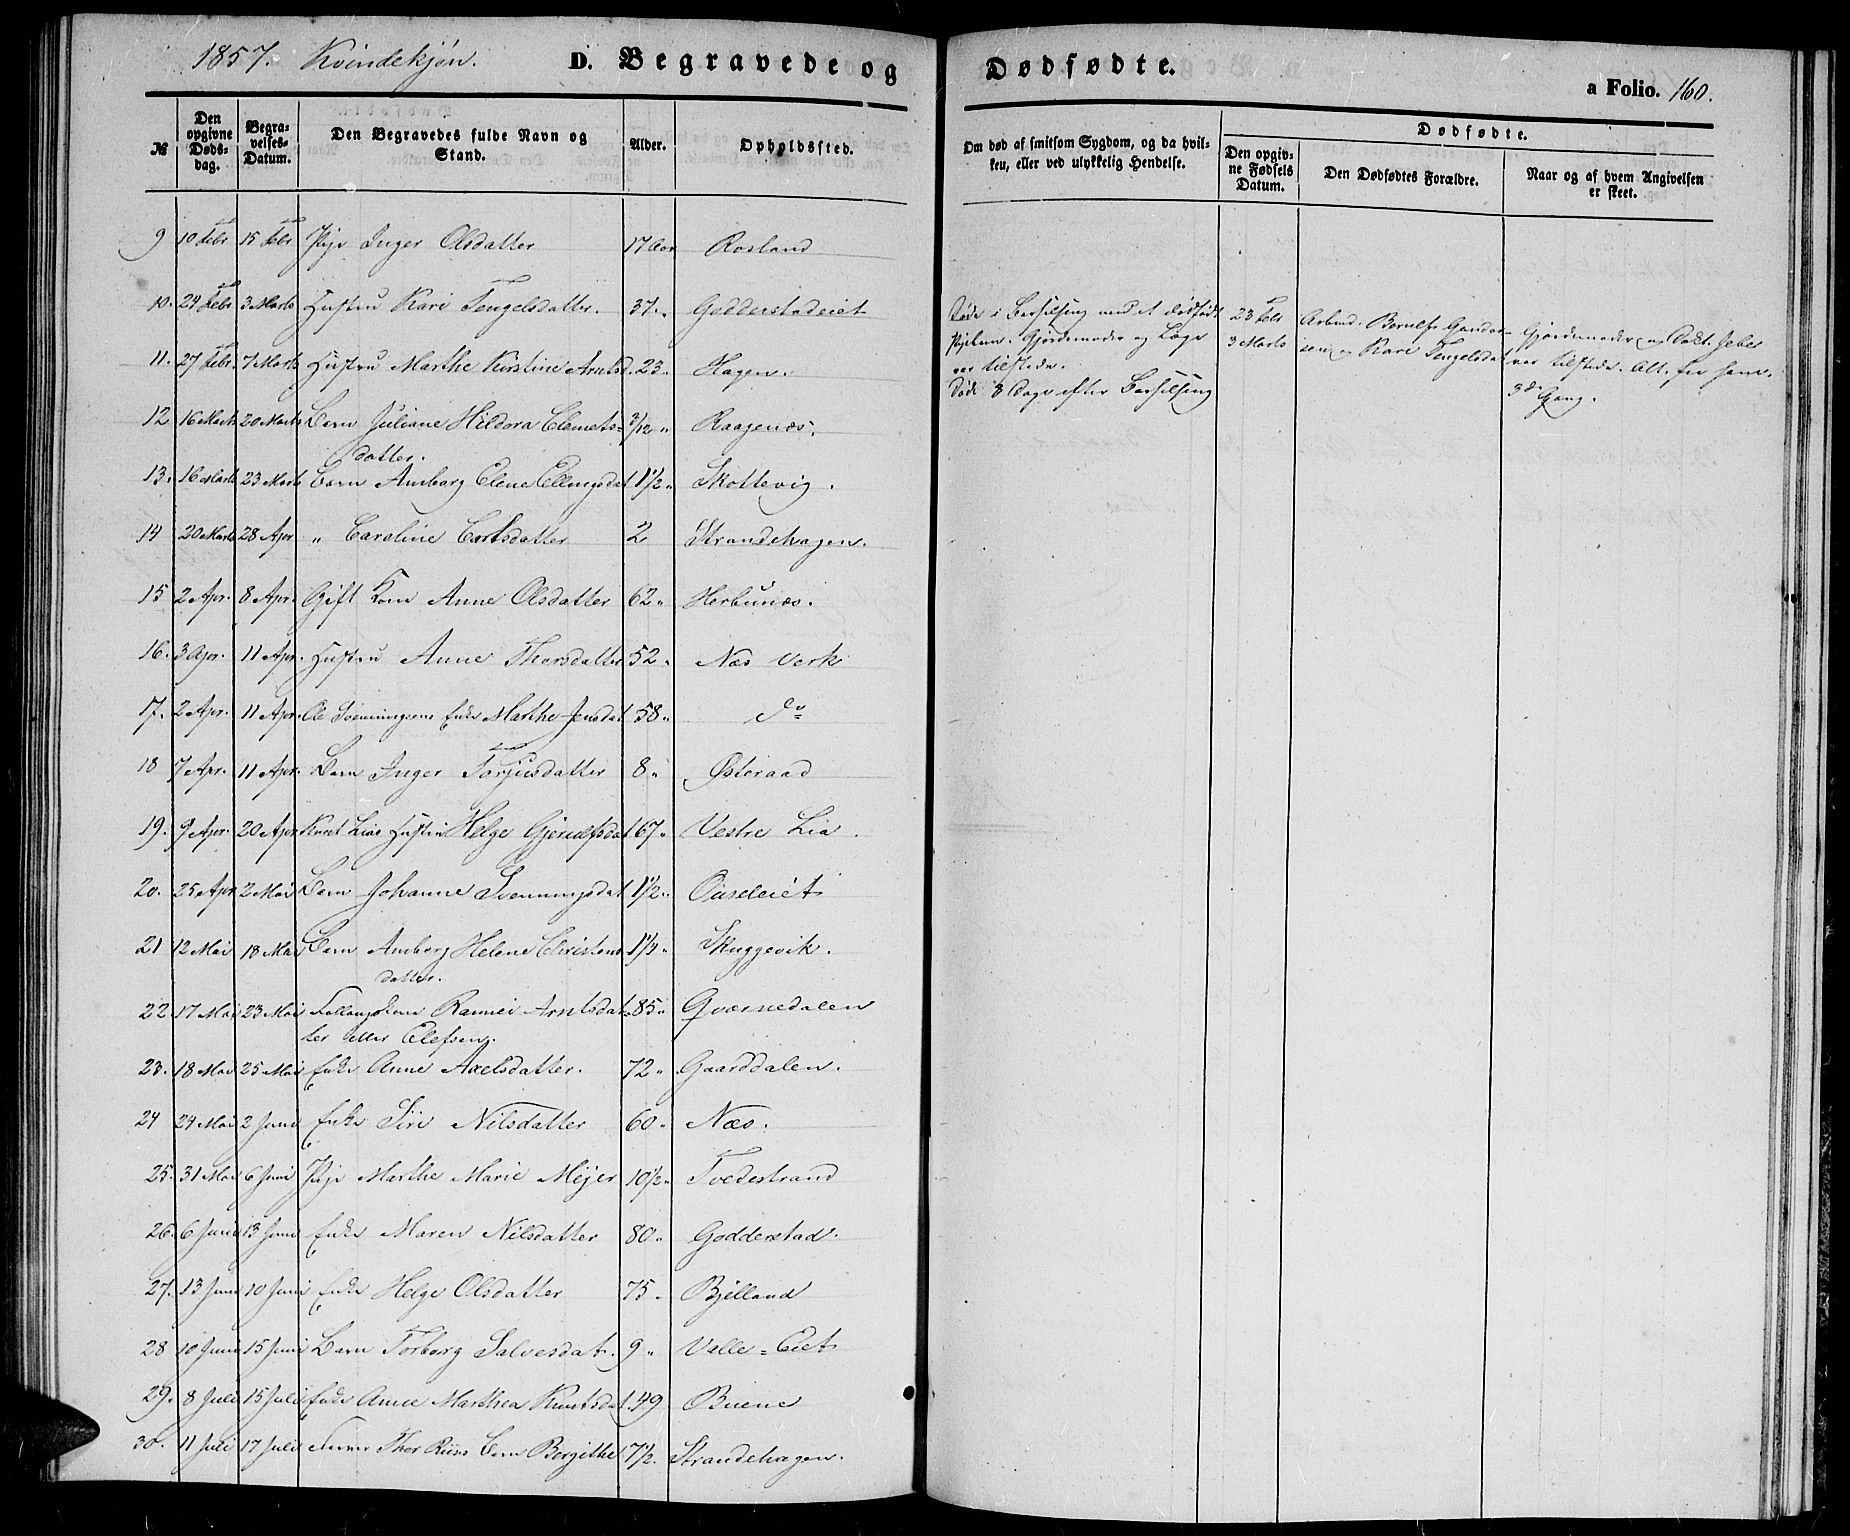 1857. Kvindekjøn. D. Begravede og Dødfødte.
a Folio. 160.
№ | Den opgivne Døds-dag. | Begra-velses-Datum. | Den Begravedes fulde Navn og Stand. | Alder. | Opholdssted. | Om død af smitsom Sygdom, og da hvil-ken, eller ved ulykkelig Hendelse. | Dødfødte. | Den opgiv-ne Fødsels Datum. | Den Dødfødtes Forældre. | Naar og af hvem Angivelsen er skeet.
9 10 Febr 15 Febr Pige Inger Olsdatter 17 Aar Rosland
10. 24 Febr 3 Marts Hustru Kari Tengelsdatter. 37 „ Godderstadeiet
Døde i Barselseng med et dødfødt Pigebarn. Gjordemoder og Læge var tilstede. 23 Febr 3 Marts
Kari Tengelsdat Gjordemoder og Dokt.
var tilstede. 3die Gang.
11. 27 Febr. 7 Marts Hustru Marthe Kirstine Arntsd. 23 „ Hagen.
Døde 8 Dage efter Barselseng
12 16 Marts 20 Marts Barn Juliane Hildora Clemets=
datter. 3/12 „ Raagenæs.
13. 16 Marts 23 Marts Barn Amborg Elene Ellingsdat 1 1/2 „ Skottevig.
14 20 Marts 28 Apr „ Caroline Carlsdatter 2 Strandehagen.
15 2 Apr. 8 Apr. Gift Kone Anne Olsdatter 62 „ Herbunæs.
16. 3 Apr. 11 Apr. Hustru Anne Thorsdatter 52 „ Næs Verk
17. 2 Apr. 11 Apr. Ole Svenningsens Enke Marthe Jensdat 58 „ do
18 7 Apr. 11 Apr. Barn Inger Torjusdatter 8 „ Østeraad
19. 9 Apr. 20 Apr Knut Lias Hustru Helge Gjerulfsdat 67 „ Vestre Lia.
20. 25 Apr 2 Mai Barn Johanne Svenningsdat 1 1/2 „ Ouseleiet
21 12 Mai 18 Mai Barn Amborg Helene Christens
datter. 1 1/4 „ Skuggevik.
22 17 Mai 23 Mai Ramnei Arntsdat=
ter eller Elefsen. 85 „ Qværnedalen
23. 18 Mai 25 Mai Enke Anne Axelsdatter. 72 „ Gaarddalen.
24 24 Mai 2 Juni Enke Siri Nilsdatter 60 „ Næs.
25. 31 Mai 6 Juni Pige Marthe Marie Mejer 10 1/2 „ Tvedestrand
26. 6 Juni 13 Juni Enke Maren Nilsdatter 80 „ Godderstad.
27. 13 Juni 10 Juni Enke Helge Olsdatter 75 „ Bjelland
28 10 Juni 15 Juni Barn Torborg Salvesdat. 9 „ Valle=Eiet
29. 8 Juli 15 Juli Enke Anne Marthea Knutsdat. 49 Buene
30. 11 Juli 17 Juli Thor Riis Barn Bergithe 7 1/2. Strandehagen.